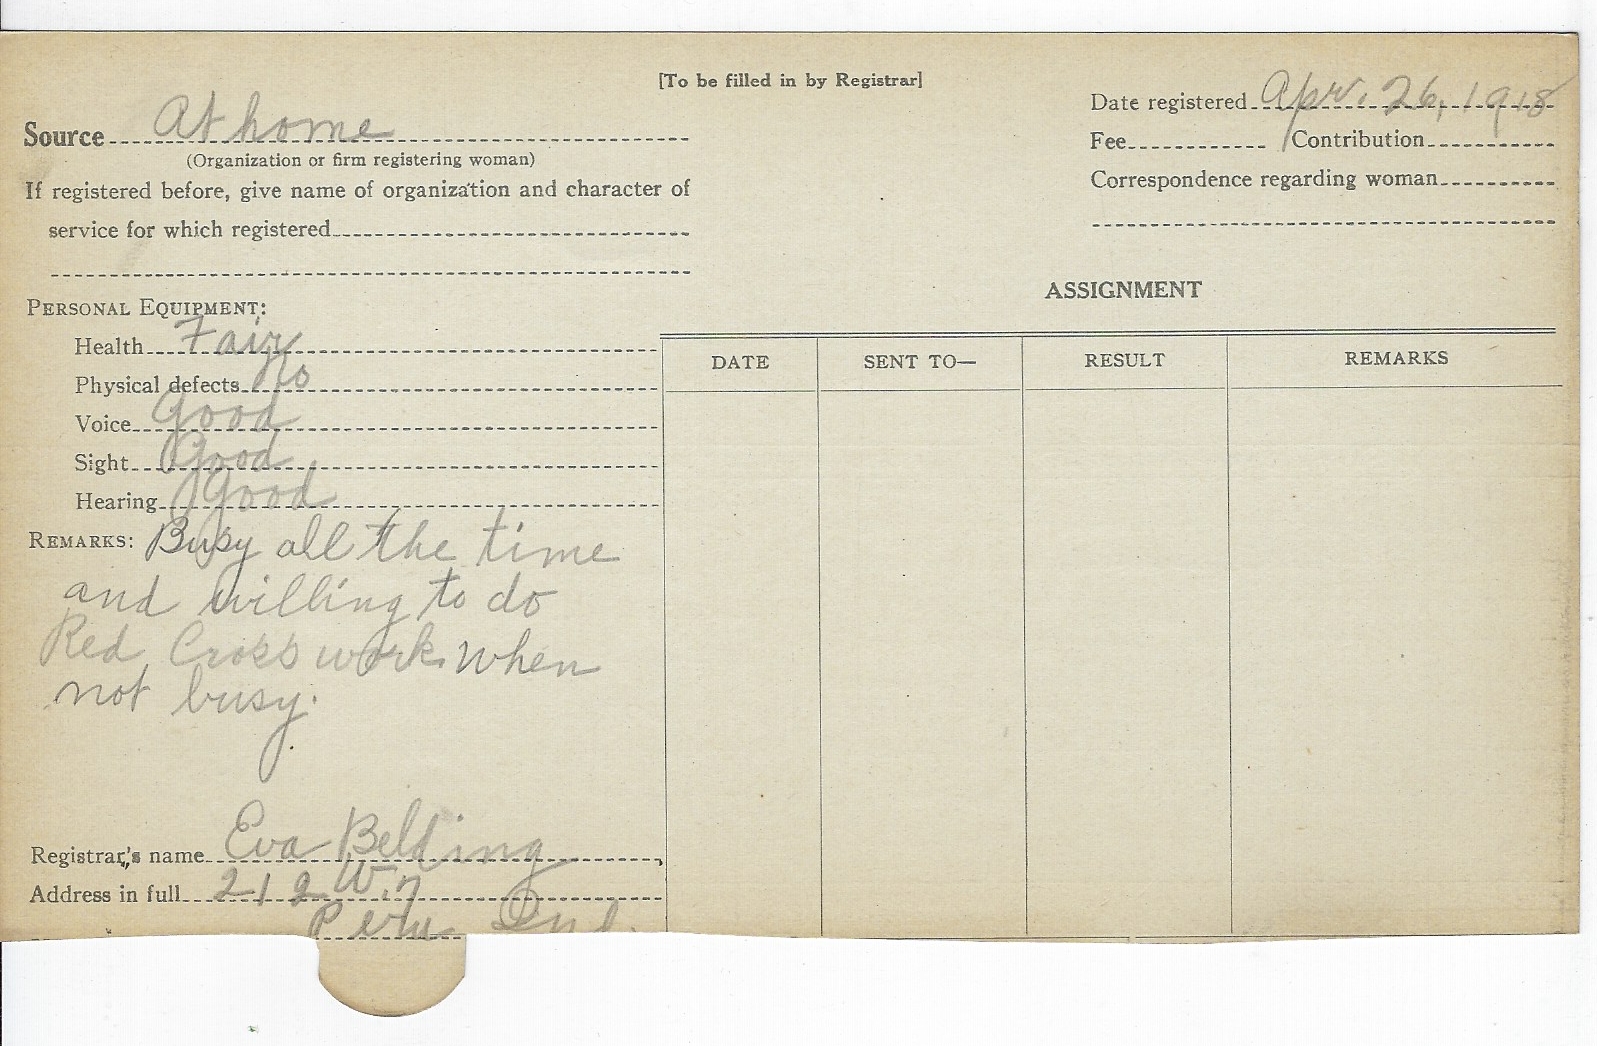 [To be filled in by Registrar]
Source At home
(Organization or firm registering woman)
If registered before, give name of organization and character of
service for which registered
Date registered Apr. 26, 1918
Fee Contribution
Correspondence regarding woman
PERSONAL EQUIPMENT:
Health Fair
Physical defects no
Voice Good
Sight Good
Hearing Good
REMARKS: Busy all the time
and willing to do
Red Cross work when
not busy.
Registrar's name Eva Belding
Address in full 212 W. 7
Peru Ind.
ASSIGNMENT
DATE SENT TO— RESULT REMARKS